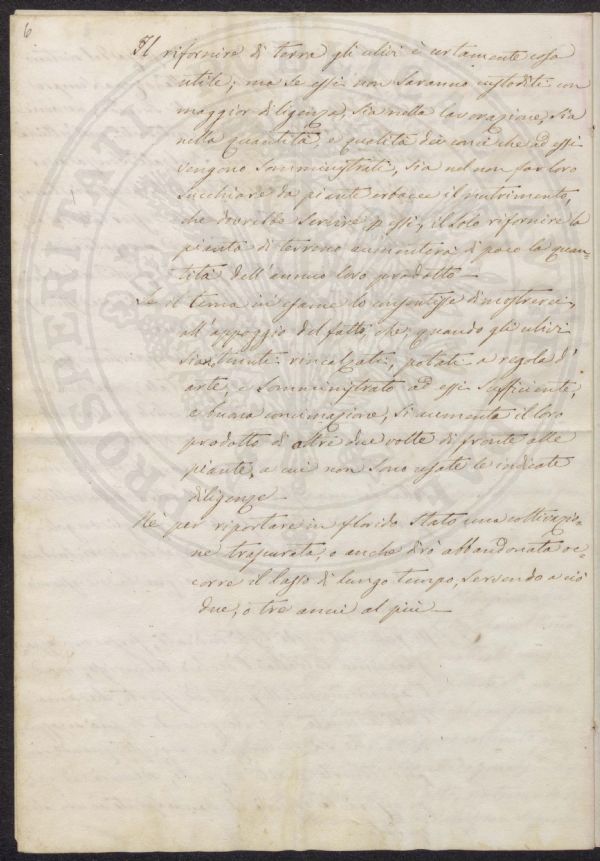 6
Il rifornire di terra gli ulivi è certamente cosa
utile; ma se essi non saranno custoditi con
maggior diligenza, sia nella lavorazione, sia
nella quantità, e qualità dei conci che ad essi
vengono somministrati, sia nel non far loro
succhiare da piante erbacee il nutrimento,
che dovrebbe servire p essi, il solo rifornire la
pianta di terreno aumenterà di poco la quan=
tità dell'annuo loro prodotto —
Se il tema in esame lo consentisse dimostrerei,
all'appoggio del fatto, che, quando gli ulivi
siano tenuti rincalzati, potati a regola d'
arte, e somministrato ad essi sufficiente,
e buona concimazione, si aumenta il loro
prodotto di oltre due volte di fronte alle
piante, a cui non sono usate le indicate
diligenze —
Nè per riportare in florido stato una coltivazio=
ne trascurata, o anche dirò abbandonata oc=
corre il lasso di lungo tempo, servendo a ciò
due, o tre anni al più —
PROSPERITATI